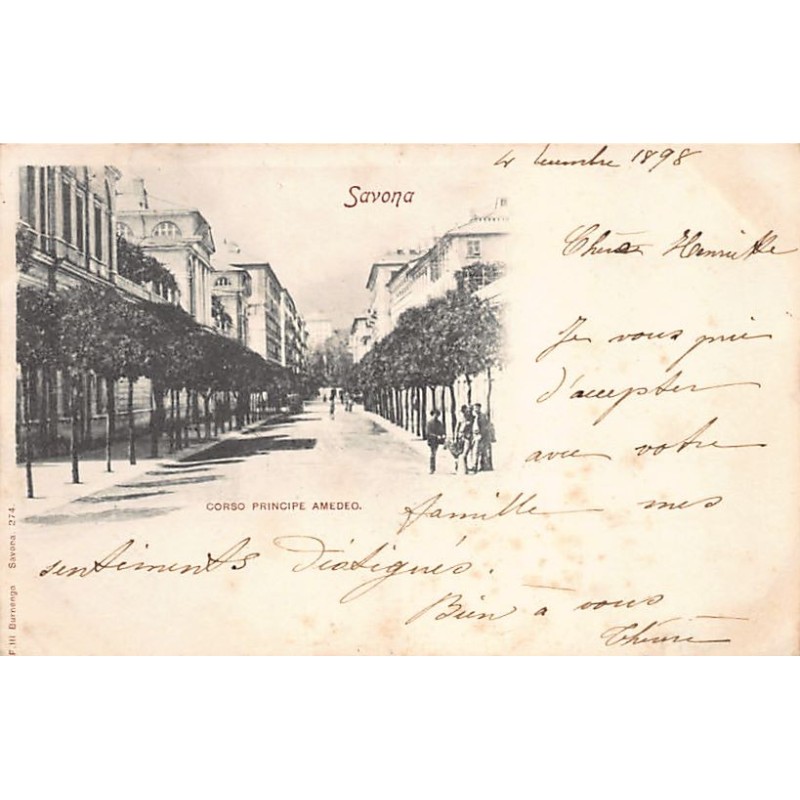 4 1898
Savona
Chère Henriette
Je vous prie
d'accepter
avec votre
famille mes
CORSO PRINCIPE AMEDEO.
sentiments distigués.
Bien à vous
F.lli Burnengo Savona. 274.